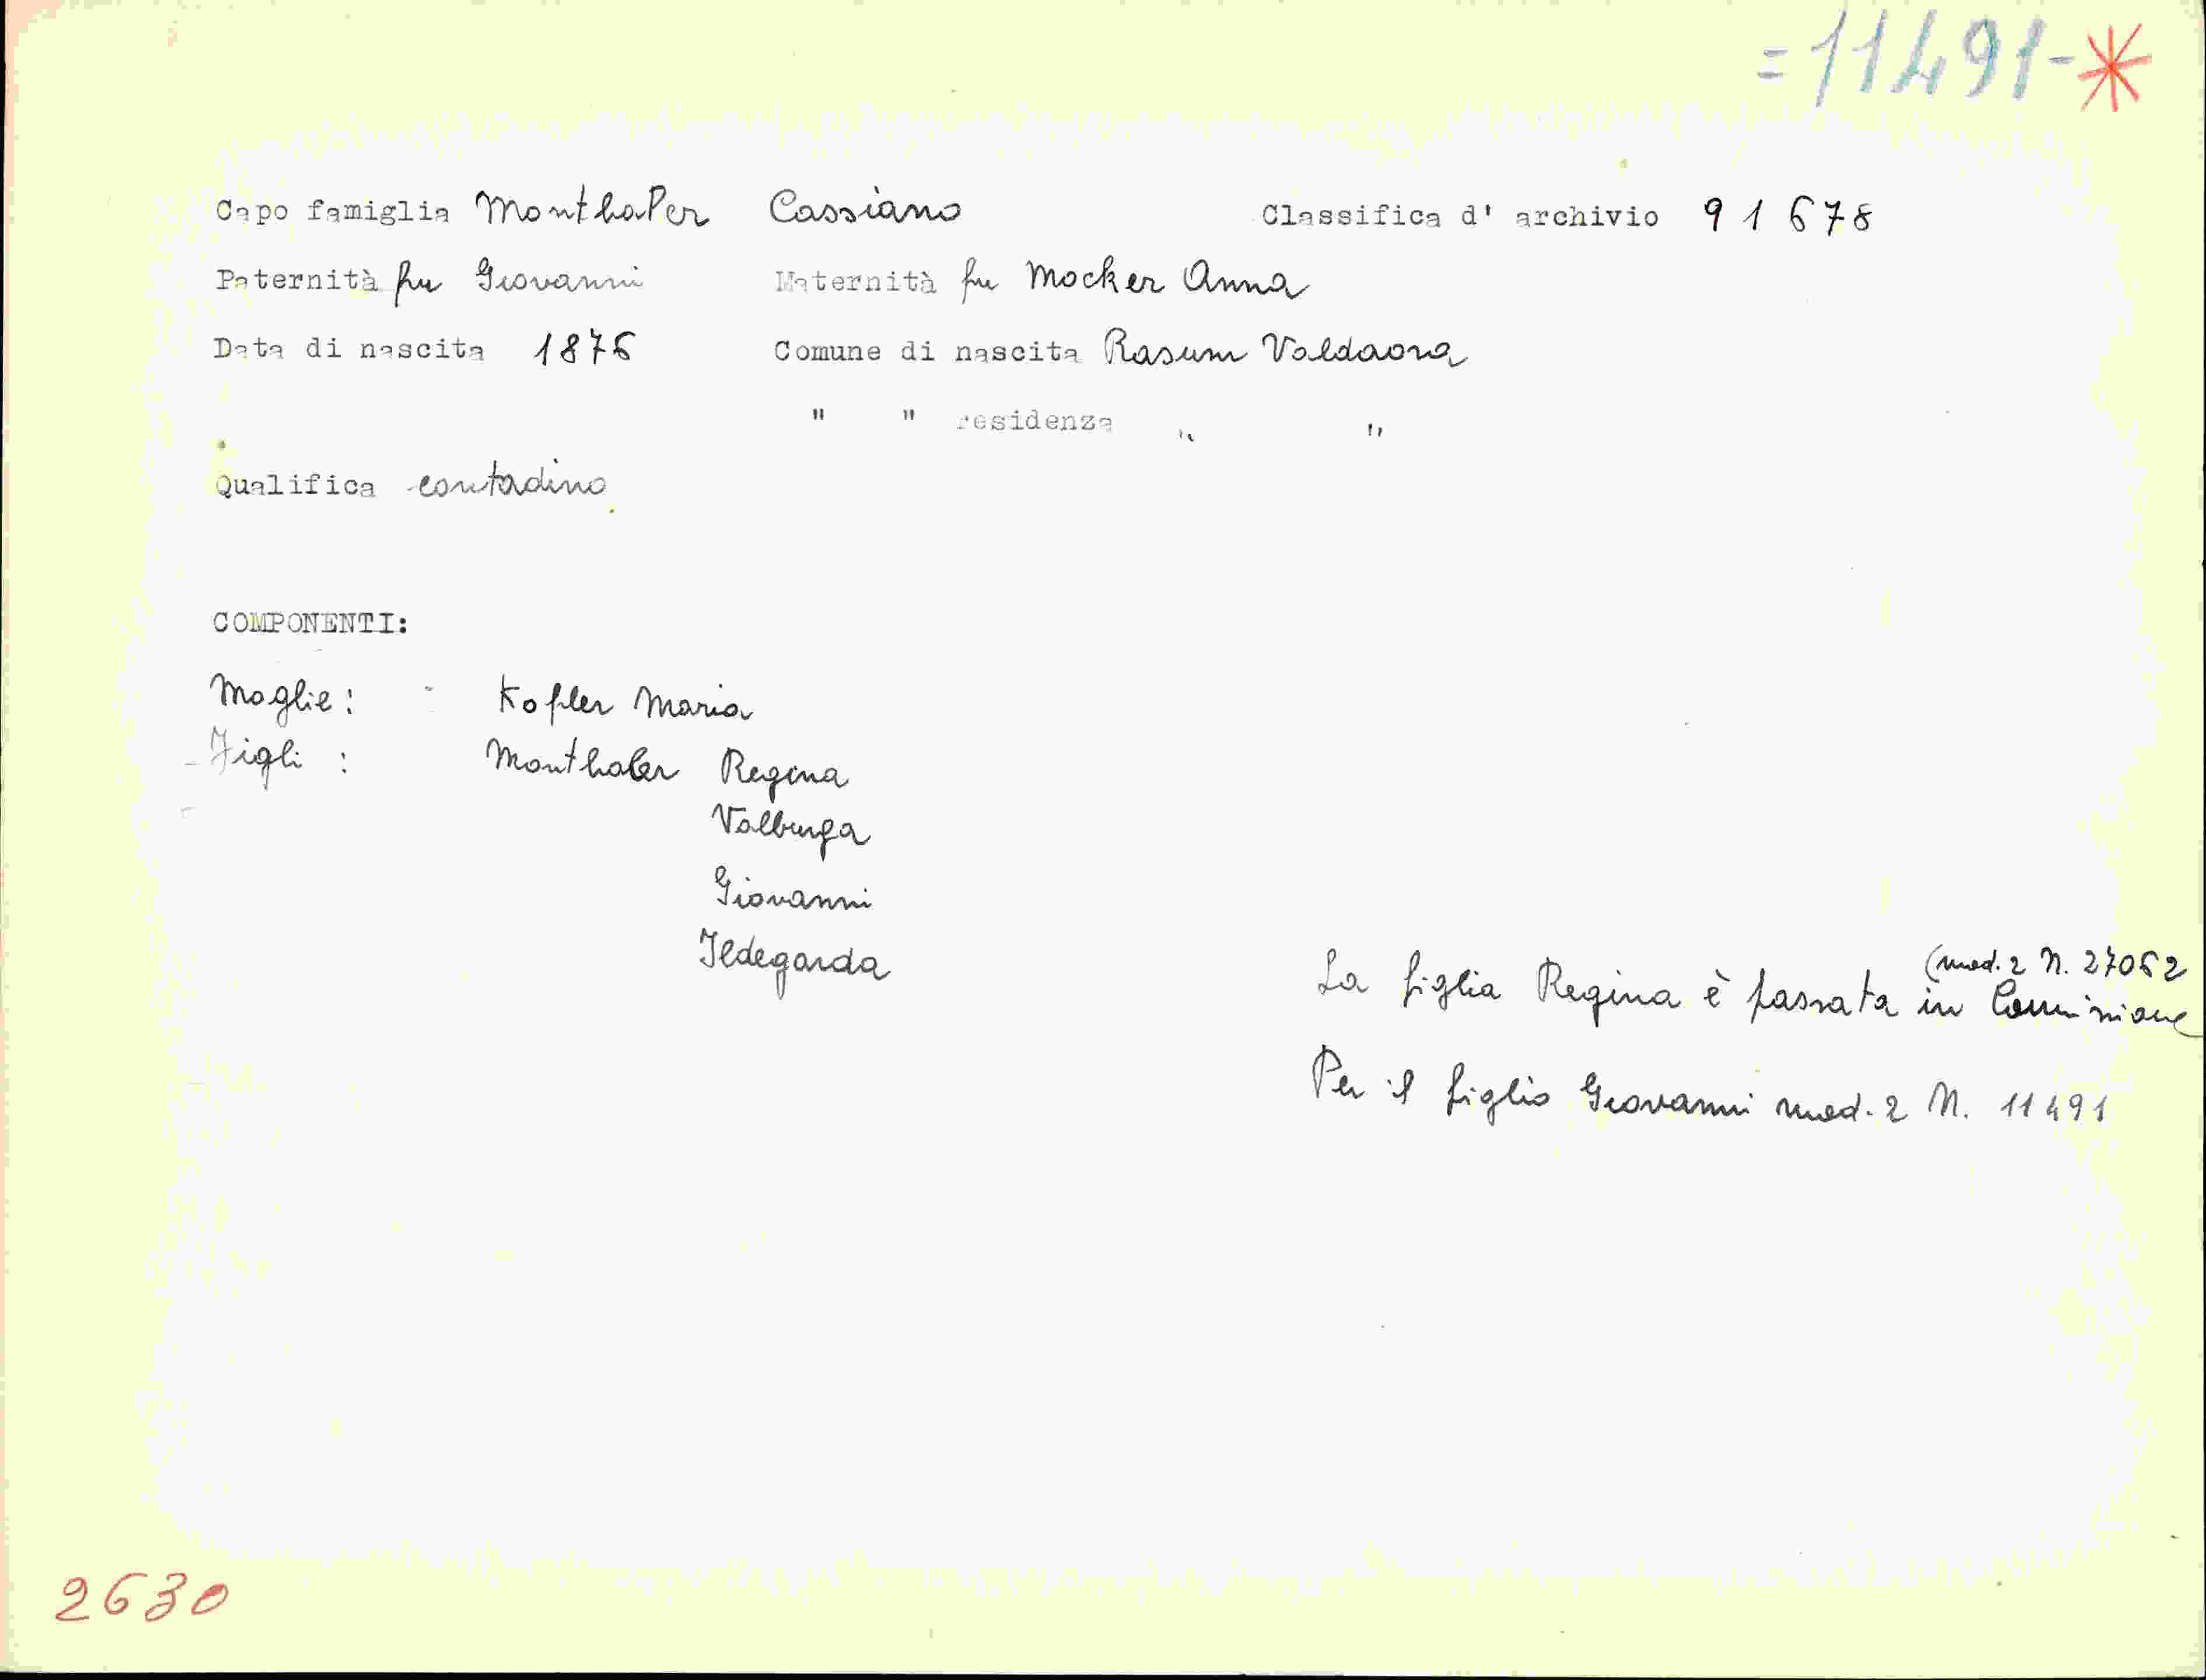 =11491-*
Capo famiglia Monthaler Cassiano Classifica d' archivio 91678
Paternità fu Giovanni Maternità fu Mocker Anna
Data di nascita 1876 Comune di nascita Rasum Valdaora
" " residenza " "
Qualifica contadino
COMPONENTI:
Moglie: Kofler Maria
Figli : Monthaler Regina
Valburga
Giovanni
Ildegarda
(mod. 2 N. 27062
La figlia Regina è passata in Commissione
Per il figlio Giovanni mod. 2 N. 11491
2630